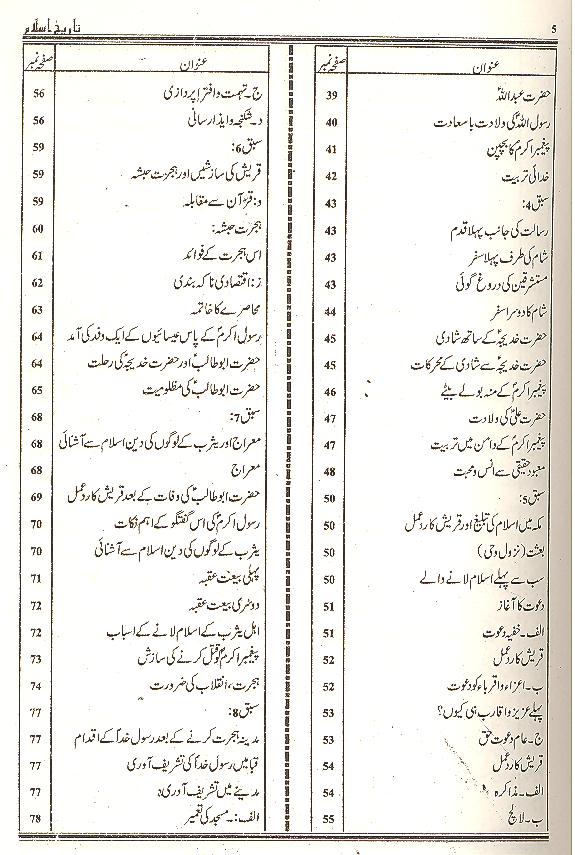 تاریخ اسلام
5
عنوان صفحہ نمبر
حضرت عبداللہؑ 39
رسول اللہؐ کی ولادت با سعادت 40
پیغمبر اکرمؐ کا بچپن 41
خدائی تربیت 42
سبق4: 43
رسالت کی جانب پہلا قدم 43
شام کی طرف پہلا سفر 43
مستشرقین کی دروغ گوئی 43
شام کا دوسرا سفر 44
حضرت خدیجہؑ کے ساتھ شادی 45
حضرت خدیجہؑ سے شادی کے محرکات 45
پیغمبر اکرمؐ کے منہ بولے بیٹے 46
حضرت علیؑ کی ولادت 47
پیغمبر اکرمؐ کے دامن میں تربیت 47
معبود حقیقی سے انس و محبت 48
سبق5: 50
مکہ میں اسلام کی تبلیغ اور قریش کا رد عمل 50
بعثت (نزول وحی) 50
سب سے پہلے اسلام لانے والے 50
دعوت کا آغاز 51
الف۔ خفیہ دعوت 51
قریش کا رد عمل 52
ب۔ اعزاء و اقرباء کو دعوت 52
پہلے عزیز و اقارب ہی کیوں؟ 53
ج۔ عام دعوت حق 53
قریش کا رد عمل 54
الف۔ مذاکرہ 54
ب۔ لالچ 55
عنوان صفحہ نمبر
ج۔ تہمت و افترا پردازی 56
د۔ شکنجہ و ایذا رسانی 56
سبق6: 59
قریش کی سازشیں اور ہجرت حبشہ 59
د: قرآن سے مقابلہ 59
ہجرت حبشہ: 60
اس ہجرت کے فوائد 61
ز: اقتصادی ناکہ بندی 62
محاصرے کا خاتمہ 63
رسول اکرمؐ کے پاس عیسائیوں کے ایک وفد کی آمد 64
حضرت ابو طالبؑ اور حضرت خدیجہؑ کی رحلت 64
حضرت ابو طالبؑ کی مظلومیت 65
سبق7: 68
معراج اور یثرب کے لوگوں کی دین اسلام سے آشنائی 68
معراج 68
حضرت ابو طالبؑ کی وفات کے بعد قریش کا رد عمل 69
رسول اکرمؐ کی اس گفتگو کے اہم نکات 70
یثرب کے لوگوں کی دین اسلام سے آشنائی 70
پہلی بیعت عقبہ 71
دوسری بیعت عقبہ 72
اہل یثرب کے اسلام لانے کے اسباب 72
پیغمبر اکرمؐ کو قتل کرنے کی سازش 73
ہجرت، انقلاب کی ضرورت 74
سبق8: 77
مدینہ ہجرت کرنے کے بعد رسول خداؐ کے اقدام 77
قبا میں رسول خداؐ کی تشریف آوری 77
مدینے میں تشریف آوری: 77
الف:۔ مسجد کی تعمیر 78